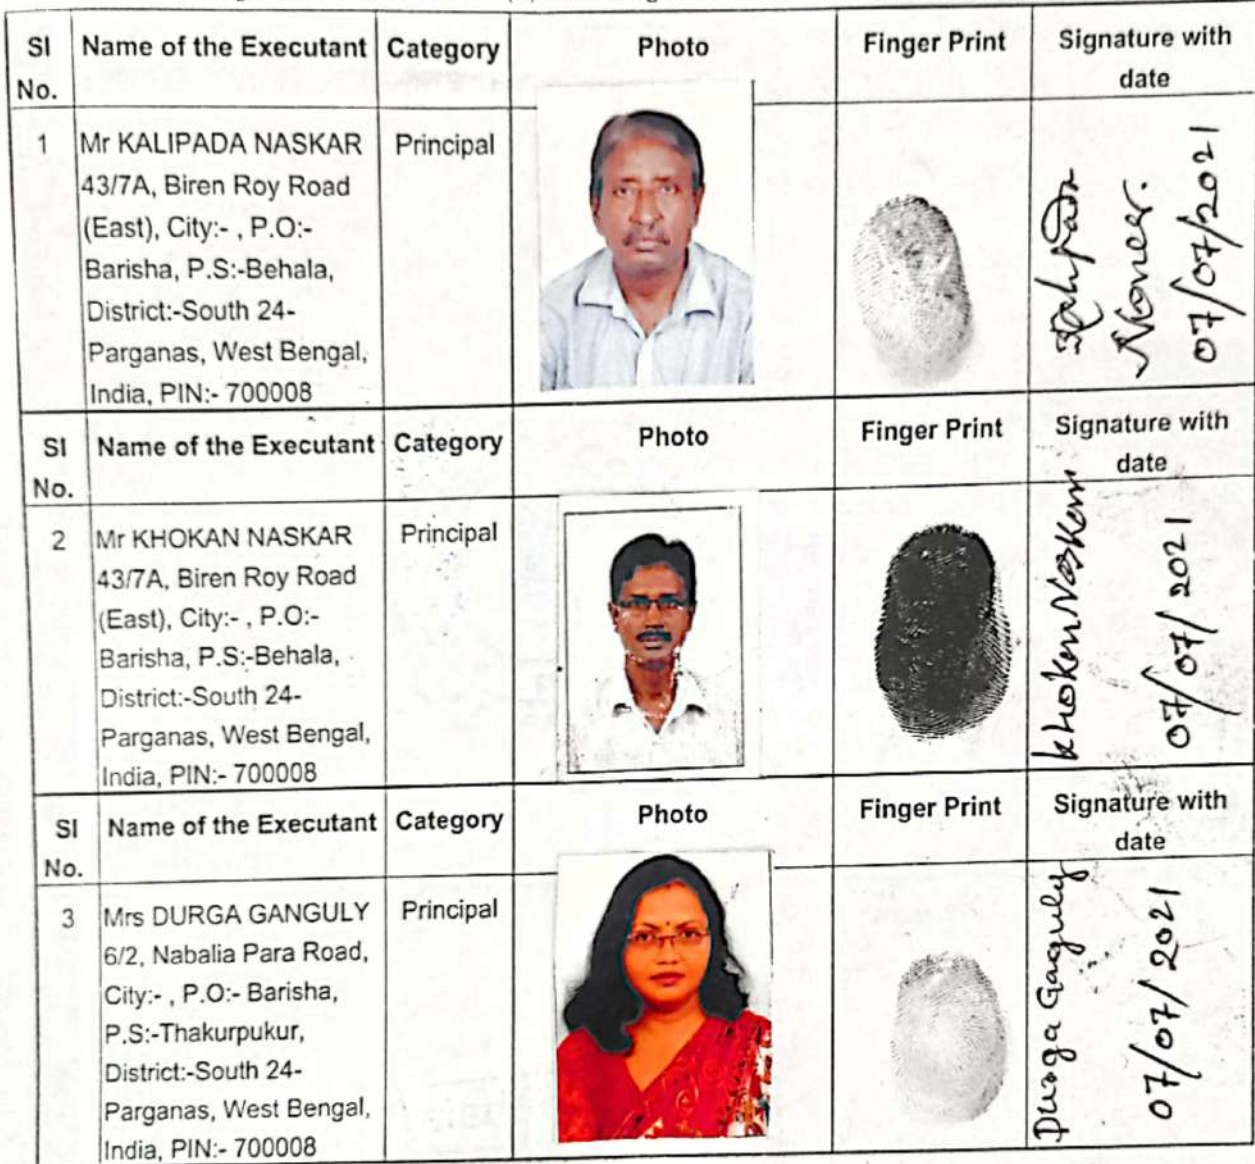 SI No. Name of the Executant Category Photo Finger Print Signature with date
1 Mr KALIPADA NASKAR Principal
43/7A, Biren Roy Road
(East), City:- , P.O:-
Barisha, P.S:-Behala,
District:-South 24-
Parganas, West Bengal,
India, PIN:- 700008
07/07/2021
SI No. Name of the Executant Category Photo Finger Print Signature with date
2 Mr KHOKAN NASKAR Principal
43/7A, Biren Roy Road
(East), City:- , P.O:-
Barisha, P.S:-Behala,
District:-South 24-
Parganas, West Bengal,
India, PIN:- 700008
Khokan Naskar
07/07/2021
SI No. Name of the Executant Category Photo Finger Print Signature with date
3 Mrs DURGA GANGULY Principal
6/2, Nabalia Para Road,
City:- , P.O:- Barisha,
P.S:-Thakurpukur,
District:-South 24-
Parganas, West Bengal,
India, PIN:- 700008
Durga Ganguly
07/07/2021